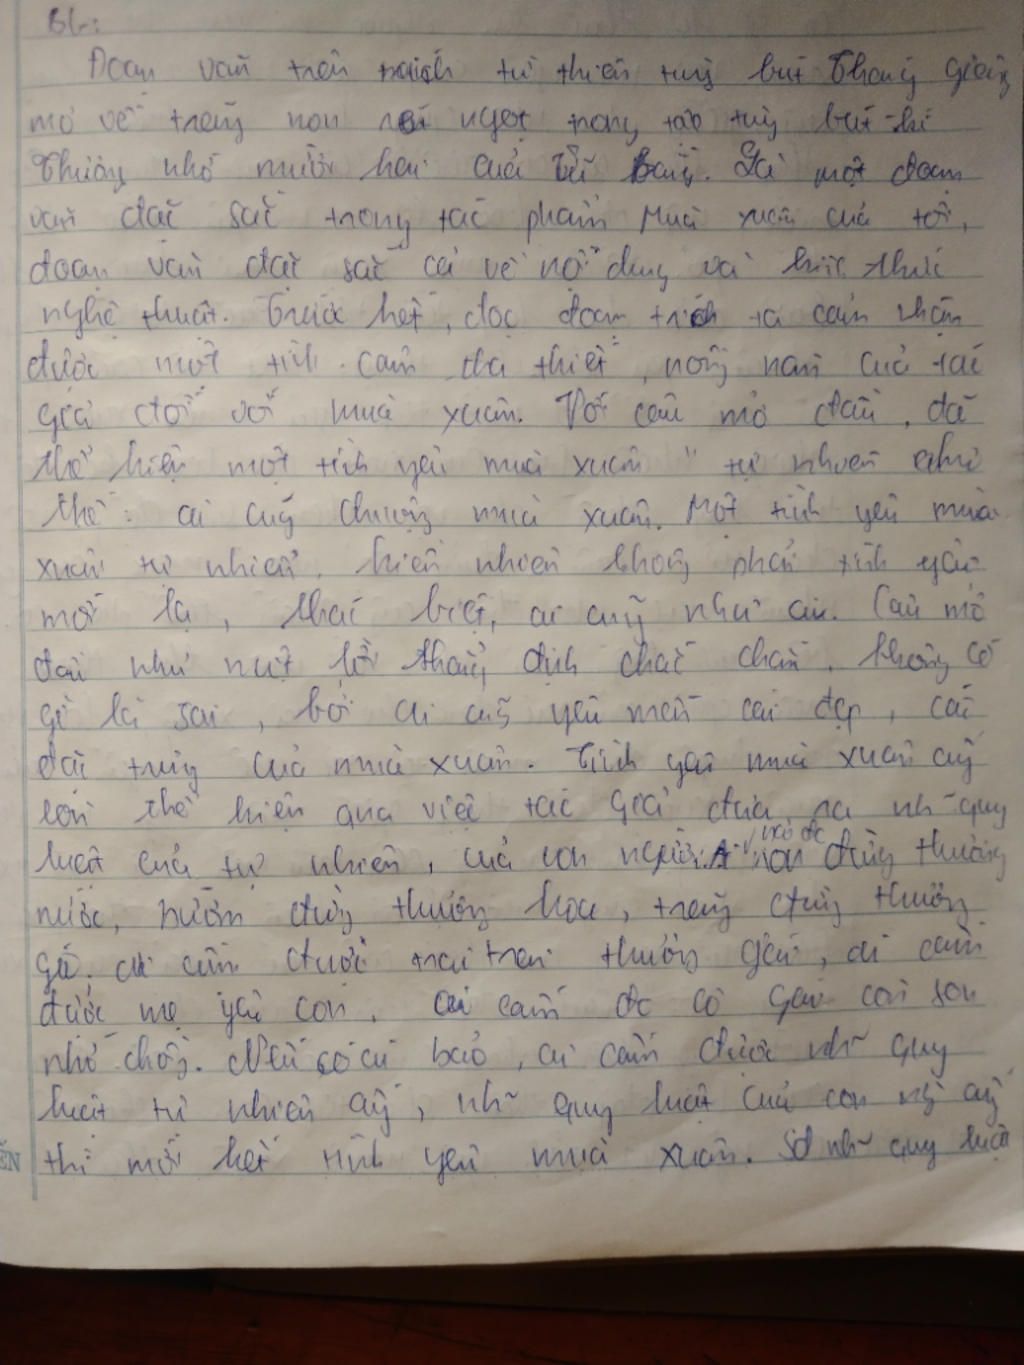 BL:
Đoạn văn trên trích từ thiên tuỳ bút tháng giêng
mơ về trăng non rét ngọt trong tập tuỳ bút
Thương nhớ mười hai của Vũ Bằng. Là một đoạn
văn đặc sắc trong tác phẩm Mùa xuân của tôi,
đoạn văn đặc sắc cả về nội dung và hình thức
nghệ thuật. Trước hết, đọc đoạn trích ta cảm nhận
được một tình cảm tha thiết, nồng nàn của tác
giả đối với mùa xuân. Với câu mở đầu, đã
thể hiện một tình yêu mùa xuân " tự nhiên như
thế: ai cũng chuộng mùa xuân. Một tình yêu mùa
xuân tự nhiên, hiển nhiên không phải tình yêu
mới lạ, khác biệt, ai cũng như ai. Câu mở
đầu như một lời khẳng định chắc chắn, không có
gì là sai, bởi ai cũng yêu mến cái đẹp, cái
đặc trưng của mùa xuân. Tình yêu mùa xuân ấy
còn thể hiện qua việc tác giả đưa ra nh~ quy
luật của tự nhiên, của con người. Ai bảo đc non đừng thương
nước, bướm đừng thương hoa, trăng đừng thương
gió. ai cấm được trai thương gái, ai cấm
được mẹ yêu con, ai cấm đc cô gái còn son
nhớ chồng. Nếu có ai bảo, ai cấm được nh~ quy
luật tự nhiên ấy, nh~ quy luật của con ng ấy
thì mới hết tình yêu mùa xuân. Sd nh~ quy luật